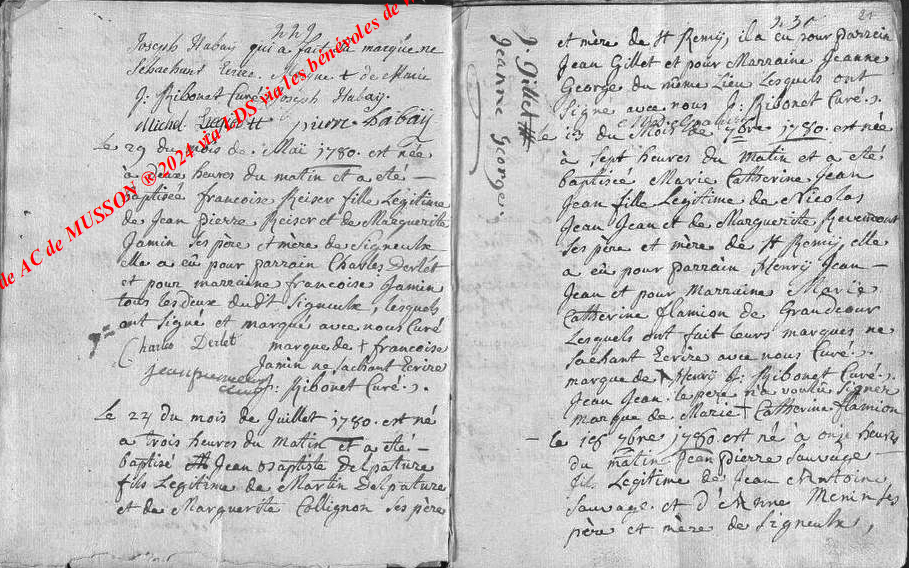 Joseph Habay qui a fait sa marque ne
Sebachant Ecrire. Marque + de Marie
J: Ribonet Curé. Joseph Habay.
Michel pierre habay
Le 29 du mois de Maï 1780 est née
à deux heures du matin et a eté -
baptisée francoise Reiser fille Légitime
de Jean pierre Reiser et de Margueritte
Jamin ses père et mère de Signeulx
elle a eû pour parrain Charles Derlet
et pour marraine francoise Jamin
tous les deux du dt Signeulx, lesquels
ont signé et marqué avec nous Curé
Charles Derlet marque de + francoise
Jamin ne sachant Ecrire
J: Ribonet Curé.
Le 24 du mois de Juillet 1780 est né
a trois heures du matin et a eté -
baptisé Jean Baptiste Delpature
fils Legitime de Martin Delpature
et de Marguerite Collignon ses père
J. Gillet
Jeanne George.
21
et mère de St Remÿ, il a eu pour parrain
Jean Gillet et pour Marraine Jeanne
George du même Lieu Lesquels ont
signé avec nous J: Ribonet Curé.
Le 13 du Mois de 7bre 1780 est née
à sept heures du matin et a eté
baptiseé Marie Catherine Jean
Jean fille Legitime de Nicolas
Jean Jean et de Marguerite
ses père et mère de St Remÿ, elle
a eû pour parrain Henrÿ Jean -
Jean et pour marraine Marie
Catherine flamion de Grandcour
Lesquels ont fait leurs marques ne
sachant Ecrire avec nous Curé.
marque de + Henrÿ J: Ribonet Curé.
Jean Jean. le père n'a voulu signer
marque de Marie + Catherine flamion
- Le 18e 7bre 1780 est né a onze heures
du matin Jean pierre Sauvage -
fils Legitime de Jean Antoine
Sauvage et d'Anne Menin ses
père et mère de Signeulx,
de AC de MUSSON ® 2024 via LDS via les bénévoles de